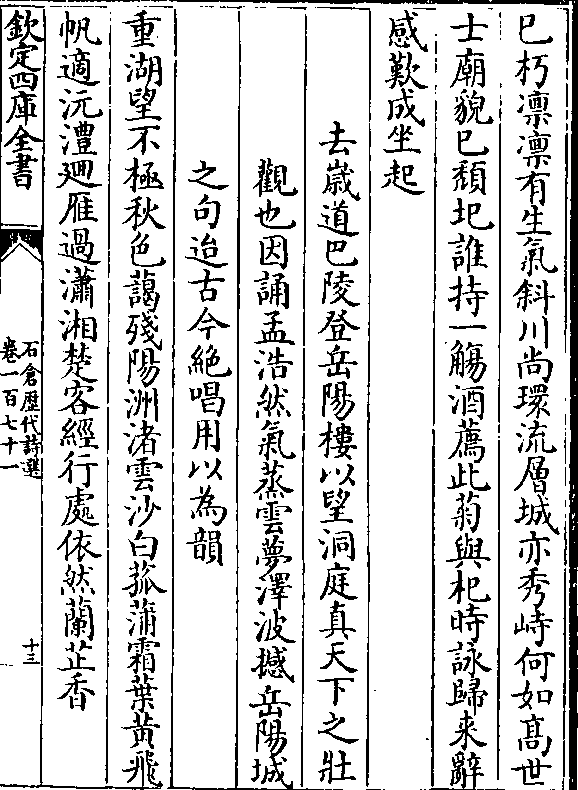 已朽凛凛有生氣斜川尚環流層城亦秀峙何如髙世
士廟貌已頹圯誰持一觴酒薦此菊與杞時詠歸来辭
感歎成坐起
去嵗道巴陵登岳陽樓以望洞庭真天下之壯
觀也因誦孟浩然氣蒸雲夢澤波撼岳陽城
之句迨古今絶唱用以為韻
重湖望不極秋色藹殘陽洲渚雲沙白菰蒲霜葉黄飛
帆適沅澧廻雁過瀟湘楚客經行處依然蘭芷香
欽定四庫全書
石倉歴代詩選
卷一百七十一
十三